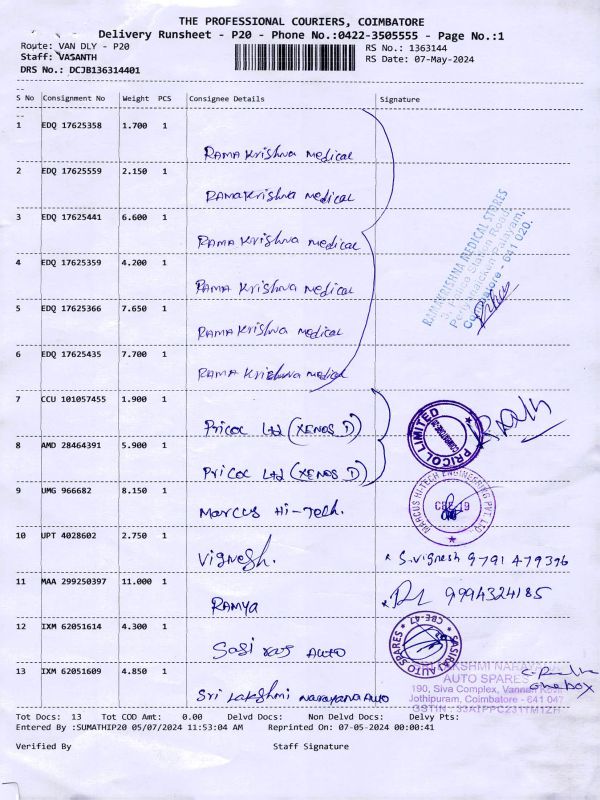 THE PROFESSIONAL COURIERS, COIMBATORE
Delivery Runsheet - P20 - Phone No.:0422-3505555 - Page No.:1
Route: VAN DLY - P20
RS No.: 1363144
Staff: VASANTH
RS Date: 07-May-2024
DRS No.: DCJB136314401
S No Consignment No Weight PCS Consignee Details Signature
1 EDQ 17625358 1.700 1
RAMA Krishna Medical
2 EDQ 17625559 2.150 1
RAMA Krishna medical
3 EDQ 17625441 6.600 1
RAMA Krishna medical
4 EDQ 17625359 4.200 1
RAMA Krishna medical
5 EDQ 17625366 7.650 1
RAMA Krishna medical
6 EDQ 17625435 7.700 1
RAMA Krishna medical
RAMAKRISHNA MEDICAL STORES
Coimbatore - 641 020.
7 CCU 101057455 1.900 1
Pricol Ltd (XENOS D)
PRICOL LIMITED
8 AMD 28464391 5.900 1
Pricol Ltd (XENOS D)
9 UMG 966682 8.150 1
Marcus Hi-Tech.
MARCUS HI-TECH ENGINEERING PVT LTD.
10 UPT 4028602 2.750 1
Vignesh.
S.Vignesh 9791 479376
11 MAA 299250397 11.000 1
RAMYA
9994324185
12 IXM 62051614 4.300 1
Sasi raj AUTO
SASIRAJ AUTO SPARES CBE-47
13 IXM 62051609 4.850 1
Sri Lakshmi narayana Auto
AUTO SPARES
190, Siva Complex,
Jothipuram, Coimbatore - 641 047
Tot Docs: 13 Tot COD Amt: 0.00 Delvd Docs: Non Delvd Docs: Delvy Pts:
Entered By :SUMATHIP20 05/07/2024 11:53:04 AM Reprinted On: 07-05-2024 00:00:41
Verified By Staff Signature